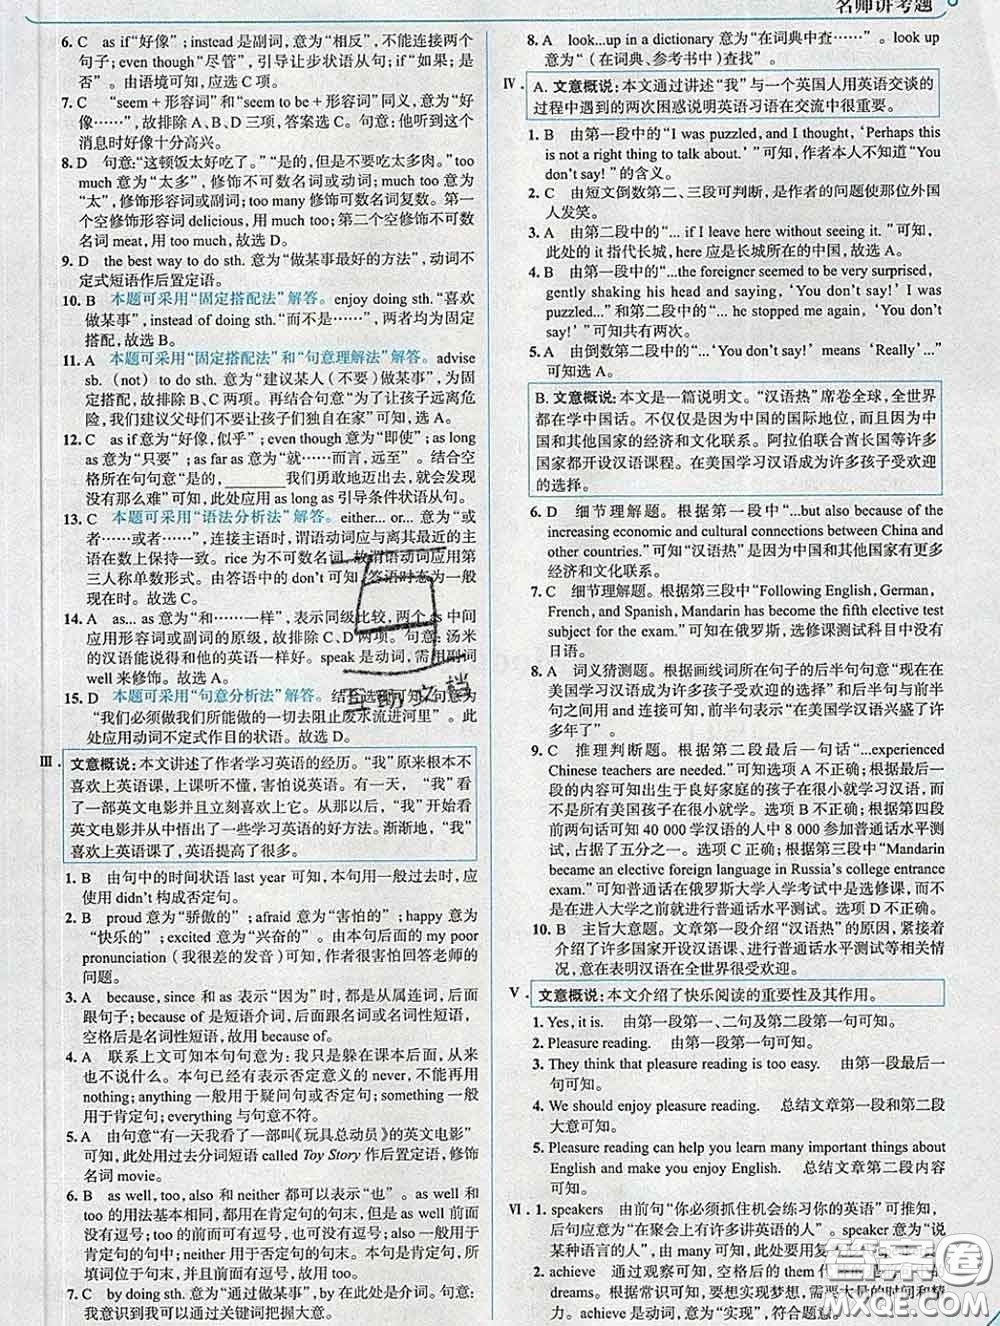 名师讲考题
6. C as if“好像”;instead是副词,意为“相反”,不能连接两个
句子;even though“尽管”,引导让步状语从句;if“如果;是
否”。由语境可知,应选C项。
7. C “seem+形容词”和“seem to be+形容词”同义,意为“好
像……”,故排除A、B、D三项,答案选C。句意:他听到这个
消息时好像十分高兴。
8. D 句意:“这顿饭太好吃了。”“是的,但是不要吃太多肉。”too
much意为“太多”,修饰不可数名词或动词;much too意为
“太”,修饰形容词或副词;too many修饰可数名词复数。第一
个空修饰形容词delicious,用much too;第二个空修饰不可数
名词meat,用too much,故选D。
9. D the best way to do sth.意为“做某事最好的方法”,动词不
定式短语作后置定语。
10. B 本题可采用“固定搭配法”解答。enjoy doing sth.“喜欢
做某事”,instead of doing sth.“而不是……”,两者均为固定
搭配,故选B。
11. A 本题可采用“固定搭配法”和“句意理解法”解答。advise
sb.(not)to do sth.意为“建议某人(不要)做某事”,为固定
搭配,故排除B、C两项。再结合句意“为了让孩子远离危
险,我们建议父母们不要让孩子们独自在家”可知,选A。
12. C as if意为“好像,似乎”;even though意为“即使”;as long
as意为“只要”;as far as意为“就……而言,远至”。结合空
格所在句句意“是的,________我们勇敢地面对,就会发现
没有那么难”可知,此处应用as long as引导条件状语从句。
13. C 本题可采用“语法分析法”解答。either... or...意为“或
者……或者……”,连接主语时,谓语动词应与离其最近的主
语在数上保持一致。rice为不可数名词,故谓语动词应用第
三人称单数形式。由答语中的don't可知,答语时态为一般
现在时。故选C。
14. A as... as意为“和……一样”,表示同级比较,两个as中间
应用形容词或副词的原级,故排除C、D两项。句意:汤米
的汉语能说得和他的英语一样好。speak是动词,需用副词
well来修饰。故选A。
15. D 本题可采用“句意分析法”解答。结合选项可知,句意为
“我们必须做我们所能做的一切去阻止废水流进河里”。此
处应用动词不定式作目的状语。故选D。
Ⅲ. 文意概说:本文讲述了作者学习英语的经历。“我”原来根本不
喜欢上英语课,上课听不懂,害怕说英语。有一天,“我”看
了一部英文电影并且立刻喜欢上它。从那以后,“我”开始看
英文电影并从中悟出了一些学习英语的好方法。渐渐地,“我”
喜欢上英语课了,英语提高了很多。
1. B 由句中的时间状语last year可知,本句用一般过去时,应
使用didn't构成否定句。
2. B proud意为“骄傲的”;afraid意为“害怕的”;happy意为
“快乐的”;excited意为“兴奋的”。由本句后面的my poor
pronunciation(我很差的发音)可知,我很害怕回答老师的
问题。
3. A because,since和as表示“因为”时,都是从属连词,后面
跟句子;because of是短语介词,后面跟名词或名词性短语,
空格后是名词性短语,故用because of。
4. A 联系上文可知本句句意为:我只是躲在课本后面,从来
也不说一句话。本句已经有表示否定意义的never,不能再用
nothing;anything一般用于疑问句或否定句;something一般
用于肯定句;everything与句意不符。
5. A 由句意“有一天我看了一部叫《玩具总动员》的英文电影”
可知,此处用过去分词短语called Toy Story作后置定语,修饰
名词movie。
6. B as well,too,also和neither都可以表示“也”。as well和
too的用法基本相同,都用在肯定句的句末,但as well前面
没有逗号;too前面可以有逗号,也可没有;also一般用于肯
定句中;neither用于否定句的句末。本句是肯定句,所
填词位于句末,且前面有逗号,故用too。
7. C by doing sth.意为“通过做某事”,by在此处是介词。句意:
我意识到我可以通过关键词把握大意。
8. A look...up in a dictionary意为“在词典中查……”。look up
意为“(在词典、参考书中)查找”。
Ⅳ. A. 文意概说:本文通过讲述“我”与一个英国人用英语交谈的
过程中遇到的两次困惑说明英语习语在交流中很重要。
1. B 由第一段中的“I was puzzled, and I thought, ‘Perhaps this
is not a right thing to talk about.’”可知,作者本人不知道“You
don't say!”的含义。
2. C 由短文倒数第二、三段可判断,是作者的问题使那位外国
人发笑。
3. A 由第二段中的“... if I leave here without seeing it.”可知,
此处的it指代长城,here应是长城所在的中国,故选A。
4. B 由第一段中的“...the foreigner seemed to be very surprised,
gently shaking his head and saying, ‘You don't say!’ I was
puzzled...”和第二段中的“... he stopped me again, ‘You don't
say!’”可知共有两次。
5. A 由倒数第二段中的“...‘You don't say!’ means ‘Really’...”
可知选A。
B. 文意概说:本文是一篇说明文。“汉语热”席卷全球,全世界
都在学中国话。不仅仅是因为中国的国际地位,而且因为中
国和其他国家的经济和文化联系。阿拉伯联合酋长国等许多
国家都开设汉语课程。在美国学习汉语成为许多孩子受欢迎
的选择。
6. D 细节理解题。根据第一段中的“...but also because of the
increasing economic and cultural connections between China and
other countries.”可知“汉语热”是因为中国和其他国家有更多
经济和文化联系。
7. C 细节理解题。根据第三段中的“Following English, German,
French, and Spanish, Mandarin has become the fifth elective test
subject for the exam.”可知在俄罗斯,选修课测试科目中没有
日语。
8. A 词义猜测题。根据画线词所在句子的后半句句意“现在在
美国学习汉语成为许多孩子受欢迎的选择”和后句与前半
句之间用and连接,可知前句应表示“在美国学汉语兴盛了许
多年了”。
9. C 推理判断题。根据第二段最后一句话“...experienced
Chinese teachers are needed.”可知选项A不正确;根据最后一
段的内容可知出生于良好家庭的孩子在很小就学习汉语,而
不是所有美国孩子在很小就学。选项B不正确;根据第四段
前两句话可知40 000学汉语的人中8 000参加普通话水平测
试,占据了五分之一。选项C正确;根据第三段中“Mandarin
became an elective foreign language in Russia's college entrance
exam.”可知普通话在俄罗斯大学入学考试中是选修课,而不
是在入大学之前就进行普通话水平测试。选项D不正确。
10. B 主旨大意题。文章第一段介绍“汉语热”的原因,紧接着
介绍了许多国家开设汉语课、进行普通话水平测试等相关情
况,意在表明汉语在全世界很受欢迎。
Ⅴ. 文意概说:本文介绍了快乐阅读的重要性及其作用。
1. Yes, it is. 由第一段第一、二句及第二段第一句可知。
2. Pleasure reading. 由第一段第一句可知。
3. They think that pleasure reading is easy. 由第一段最后一
句可知。
4. We should enjoy pleasure reading. 总结文章第一段和第二段
大意可知。
5. Pleasure reading can help you learn many important things about
English and make you enjoy English. 总结文章第二段内容
可知。
Ⅵ. 1. speakers 由前句“你必须抓住机会练习你的英语”可推知,
后句应意为“在聚会上有许多讲英语的人”。speaker意为“说
某种语言的人”,由many可知,此处要用复
2. achieve 通过观察可知,空格后的them代
dreams。根据常识可知,要想实现梦想,需要
力。achieve是动词,意为“实现”,符合题意。
互助文档
答案圈
MXQE.COM